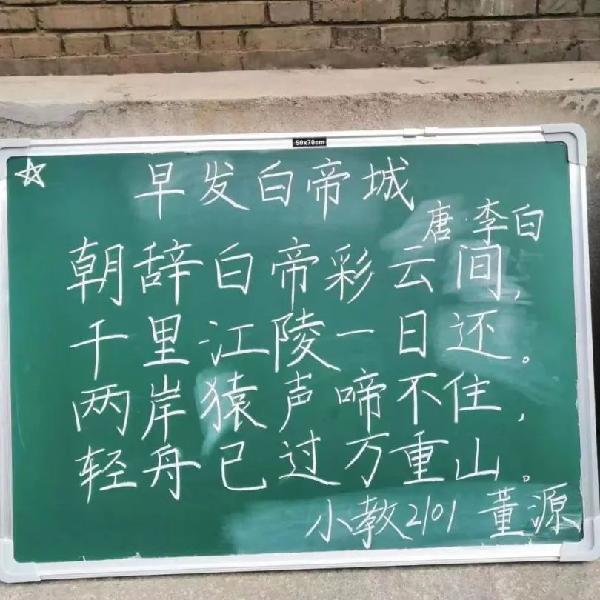 50x70cm
早发白帝城
唐·李白
朝辞白帝彩云间，
千里江陵一日还。
两岸猿声啼不住，
轻舟已过万重山。
小教2101 董源